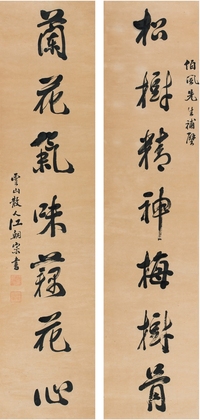 怡風先生補壁
松樹精神梅樹骨
蘭花氣味藕花心
雲山散人江朝宗書